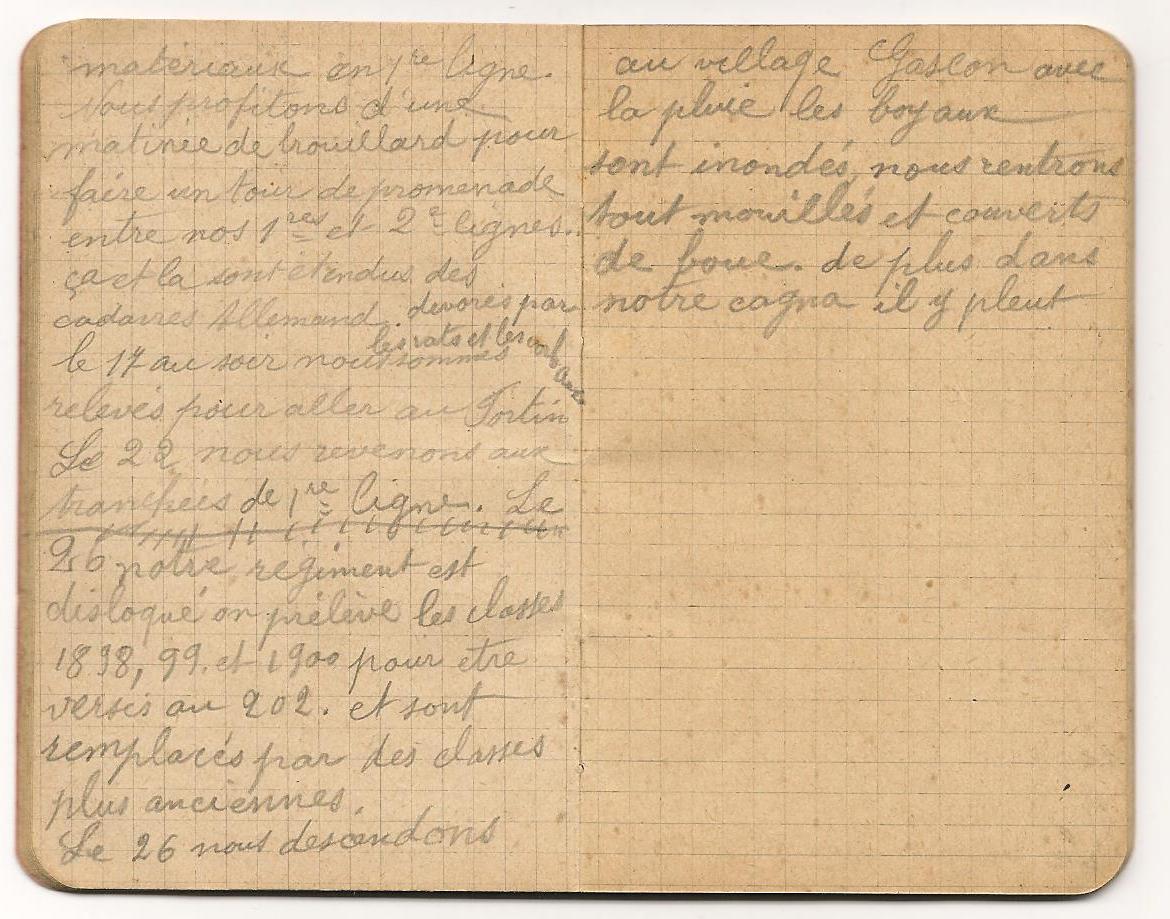 matériaux en 1re ligne.
Nous profitons d'une
matinée de brouillard pour
faire un tour de promenade
entre nos 1res et 2e lignes.
ça et la sont étendus des
cadavres Allemand. devorés par
les rats et les corbeaux
le 17 au soir nous sommes
relevés pour aller au Fortin
Le 22 nous revenons aux
tranchées de 1re ligne. Le
26 notre régiment est
disloqué on prélève les classes
1898, 99. et 1900 pour etre
versés au 202. et sont
remplacés par des classes
plus anciennes.
Le 26 nous descendons
au village Gascon avec
la pluie les boyaux
sont inondés, nous rentrons
tout mouillés et couverts
de boue. de plus dans
notre cagna il y pleut